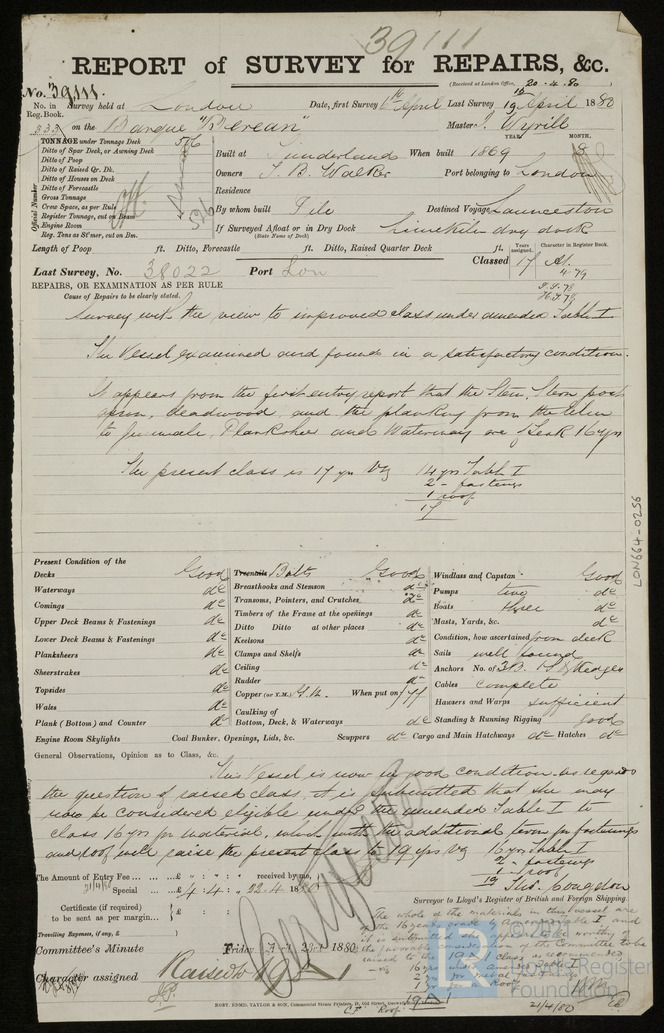 39111
REPORT of SURVEY for REPAIRS, &c.
(Received at London Office, 20.4.80)
No. 39111.
No. in Survey held at London Date, first Survey 6th April Last Survey 19 April 1880
Reg. Book.
333 on the Barque "Berean" Master J. Wyrill
TONNAGE under Tonnage Deck 526
Ditto of Spar Deck, or Awning Deck
Ditto of Poop
Ditto of Raised Qr. Dk.
Ditto of Houses on Deck
Ditto of Forecastle
Gross Tonnage
Crew Space, as per Rule
Register Tonnage, cut on Beam
Engine Room
Reg. Tons as St'mer, cut on Bm.
Official Number
YEAR. MONTH.
Built at Sunderland When built 1869 8
Owners T. B. Walker Port belonging to London
Residence
By whom built Pile Destined Voyage Launceston
If Surveyed Afloat or in Dry Dock Limekiln dry dock
(State Name of Dock)
Length of Poop ft. Ditto, Forecastle ft. Ditto, Raised Quarter Deck ft.
Years assigned. Character in Register Book.
Last Survey, No. 38022 Port Lon Classed 17 A1.
4.79
REPAIRS, OR EXAMINATION AS PER RULE
Cause of Repairs to be clearly stated.
Survey with the view to improved class under amended Table I
The Vessel examined and found in a satisfactory condition.
It appears from the first entry report that the Stem, Stern post
apron, deadwood, and the planking from the
to gunwale, Planksheer and Waterway are of Teak 16 yrs
The present class is 17 yrs Vz 14 yrs Table I
2 - fastenings
1 roof
17
Present Condition of the
Decks Good
Waterways do
Comings do
Upper Deck Beams & Fastenings do
Lower Deck Beams & Fastenings do
Planksheers do
Sheerstrakes do
Topsides do
Wales do
Plank (Bottom) and Counter do
Engine Room Skylights
Treenails Bolts Good
Breasthooks and Stemson do
Transoms, Pointers, and Crutches do
Timbers of the Frame at the openings do
Ditto Ditto at other places do
Keelsons do
Clamps and Shelfs do
Ceiling do
Rudder do
Copper (or Y.M.) Y.M. When put on
Caulking of
Bottom, Deck, & Waterways do
Coal Bunker, Openings, Lids, &c. Scuppers do
Windlass and Capstan Good
Pumps two do
Boats three do
Masts, Yards, &c. do
Condition, how ascertained from deck
Sails well found
Anchors No. of 3B. 1S. & Kedges
Cables complete
Hawsers and Warps sufficient
Standing & Running Rigging good
Cargo and Main Hatchways do Hatches do
General Observations, Opinion as to Class, &c.
This Vessel is now in good condition. As regards
the question of raised class it is submitted that she may
now be considered eligible under the amended Table I to
class 16 yrs for material, which with the additional terms for fastenings
and roof will raise the present class to 19 yrs Vz 16 yrs Table I
2 - fastenings
1 roof
19
The Amount of Entry Fee ... £ : : received by me,
Special ... £ 4 : 4 : 22.4 1880
Thos. Congdon
Surveyor to Lloyd's Register of British and Foreign Shipping.
Certificate (if required)
to be sent as per margin...
Travelling Expenses, if any, £
The whole of the materials in this vessel are
of the 16 years grade by amended Table I and
it is submitted she would be worthy of
the favorable consideration of the Committee to be
raised to the 19A class as recommended
19 A 1
21/4/80
Committee's Minute Friday April 23rd 1880
Character assigned Raised to 19 A 1
LON664-0256
© 2021
LR
Lloyd's Register
Foundation